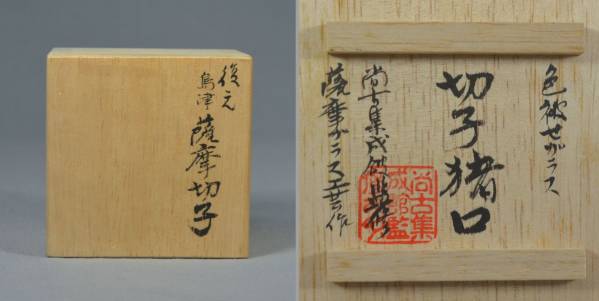 復元
島津
薩摩切子
色被せガラス
切子猪口
尚古集成館監修
薩摩ガラス工芸作
尚古集
成館監